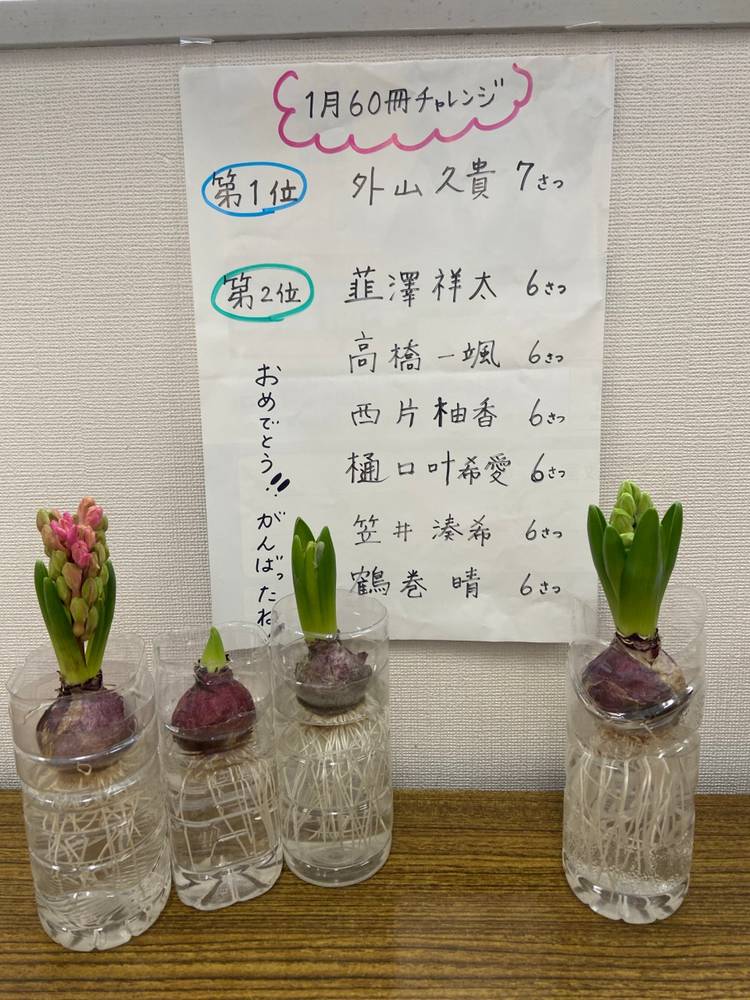 1月60冊チャレンジ
第1位 外山久貴 7さつ
第2位 韮澤祥太 6さつ
高橋一颯 6さつ
西片柚香 6さつ
樋口叶希愛 6さつ
笠井湊希 6さつ
鶴巻晴 6さつ
おめでとう!! がんばったね